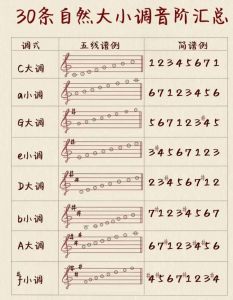 30条自然大小调音阶汇总
调式 五线谱例 简谱例
C大调 1 2 3 4 5 6 7 1
a小调 6 7 1 2 3 4 5 6
G大调 5 6 7 1 2 3 #4 5
e小调 3 #4 5 6 7 1 2 3
D大调 2 3 #4 5 6 7 #1 2
b小调 7 #1 2 3 #4 5 6 7
A大调 6 7 #1 2 3 #4 #5 6
#f小调 #4 #5 6 7 #1 2 3 #4